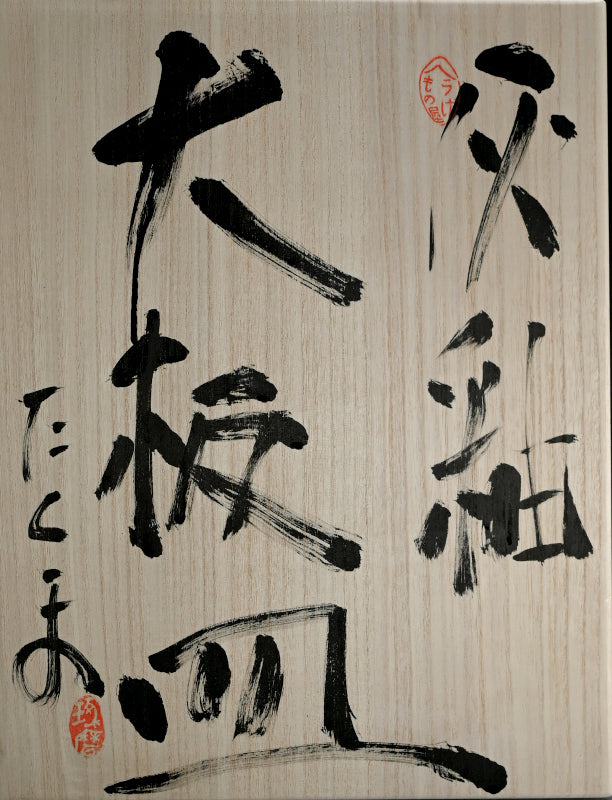 へうげもの
灰釉
大板皿
たくま
琢磨